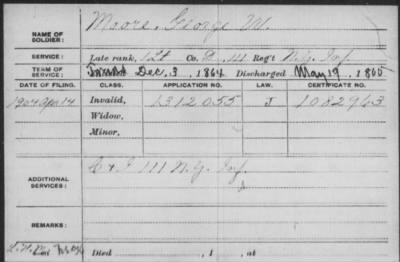 NAME OF SOLDIER: Moore, George W.
SERVICE: Late rank, Lt Co. D, 111 Reg't N.Y. Inf.
TERM OF SERVICE: Dec. 3, 1864 Discharged May 19, 1865
DATE OF FILING. CLASS. APPLICATION NO. LAW. CERTIFICATE NO.
1904 Apr 14 Invalid, 1312055 J 1082963
Widow,
Minor,
ADDITIONAL SERVICES: 111 N.Y. Inf.
REMARKS:
Died , 1 , at